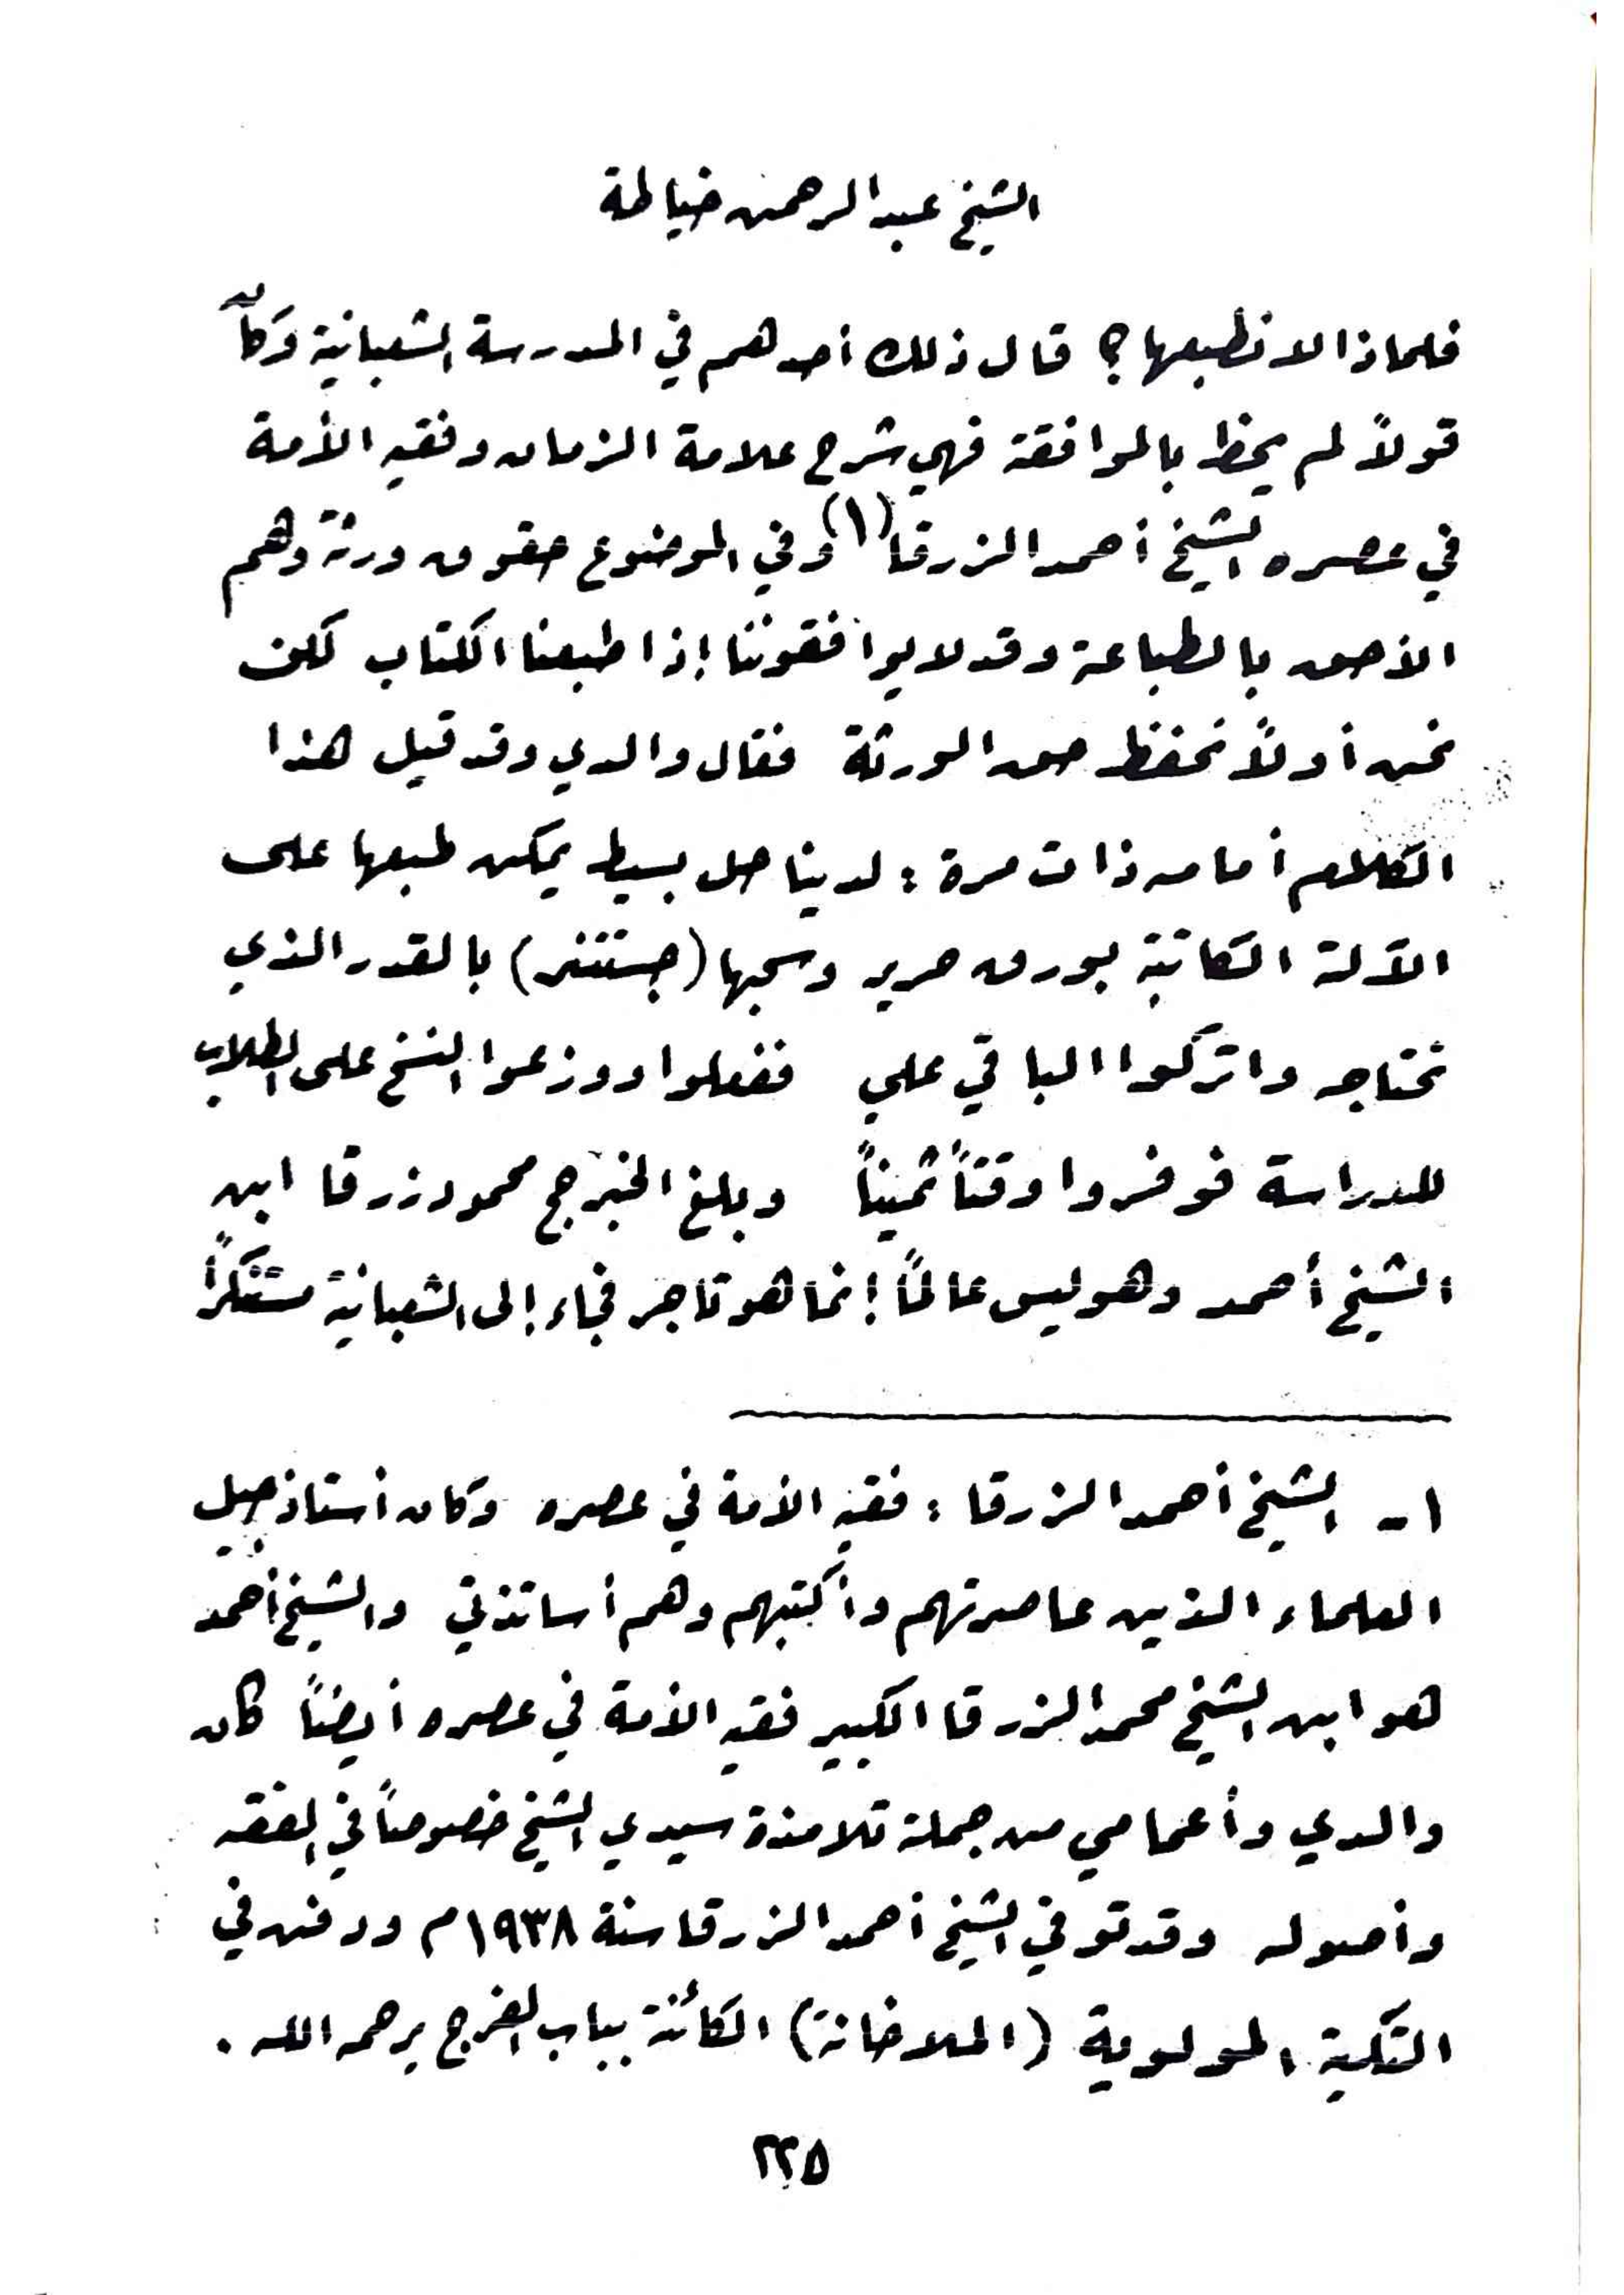 الشيخ عبد الرحمن خياطة
فلماذا لا نطبعها؟ قال ذلك أحدهم في المدرسة الشعبانية وكأنه
قولاً لم يحظ بالموافقة فهي شرح علامة الزمان وفقيه الأمة
في عصره الشيخ أحمد الزرقا (١) وفي الموضوع حقوق ورثة وهم
الأحق بالطباعة وقد لا يوافقوننا إذا طبعنا الكتاب لكن
نحن أولاً نحفظ حق الورثة فقال والدي وقد قيل هذا
الكلام أمامه ذات مرة : لدينا حل بسيط يمكن طبعها على
الآلة الكاتبة بورق حرير وسحبها (جستتنر) بالقدر الذي
نحتاجه واتركوا الباقي علي ففعلوا ووزعوا النسخ على الطلاب
للدراسة فوفروا وقتاً ثميناً وبلغ الخبر حج محمود زرقا ابن
الشيخ أحمد وهو ليس عالماً إنما هو تاجر فجاء إلى الشعبانية مستنكراً
١ـ الشيخ أحمد الزرقا : فقيه الأمة في عصره وكان أستاذ جيل
العلماء الذين عاصرتهم وأكتبهم وهم أساتذتي والشيخ أحمد
هو ابن الشيخ محمد الزرقا الكبير فقيه الأمة في عصره أيضاً كان
والدي وأعمامي من جملة تلامذة سيدي الشيخ خصوصاً في الفقه
وأصوله وقد توفي الشيخ أحمد الزرقا سنة ١٩٣٨م ودفن في
التكية المولوية (الملاخانة) الكائنة بباب الفرج يرحمه الله .
٢٢٥